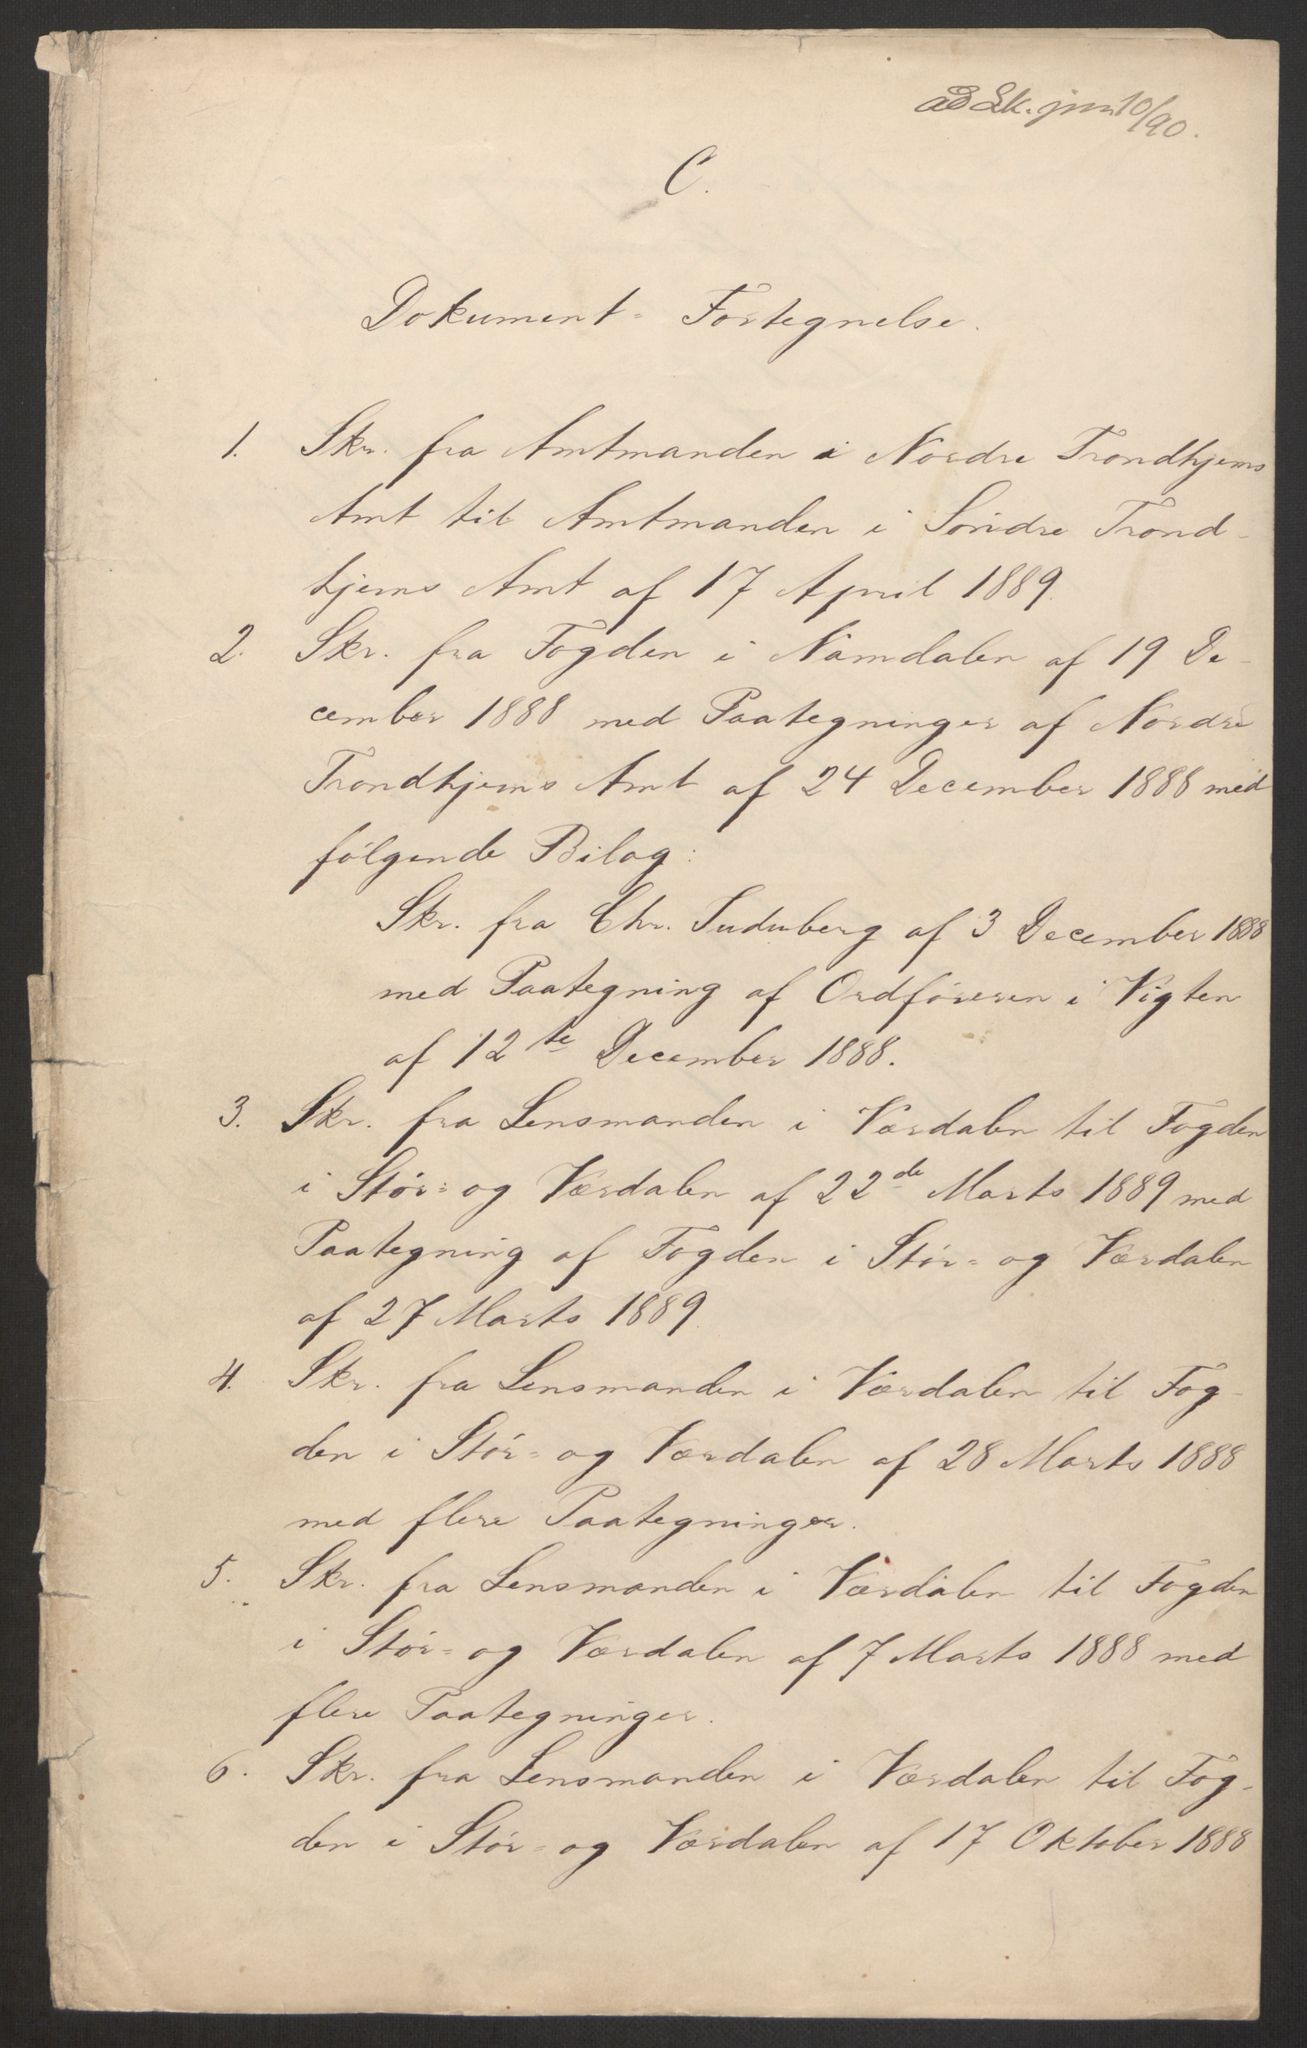 ad Sk. jnr 10/90.
C.
Dokument-Fortegnelse.
1. Skr. fra Amtmanden i Nordre Trondhjems
Amt til Amtmanden i Søndre Trond-
hjems Amt af 17 April 1889.
2. Skr. fra Fogden i Namdalen af 19 De-
cember 1888 med Paategninger af Nordre
Trondhjems Amt af 24 December 1888 med
følgende Bilag:
Skr. fra Chr. af 3 December 1888
med Paategning af Ordføreren i Vigten
af 12te December 1888.
3. Skr. fra Lensmanden i Værdalen til Fogden
i Stør- og Værdalen af 22de Marts 1889 med
Paategning af Fogden i Stør- og Værdalen
af 27 Marts 1889.
4. Skr. fra Lensmanden i Værdalen til Fog-
den i Stør- og Værdalen af 28 Marts 1888
med flere Paategninger.
5. Skr. fra Lensmanden i Værdalen til Fogden
i Stør- og Værdalen af 7 Marts 1888 med
flere Paategninger.
6. Skr. fra Lensmanden i Værdalen til Fog-
den i Stør- og Værdalen af 17 Oktober 1888